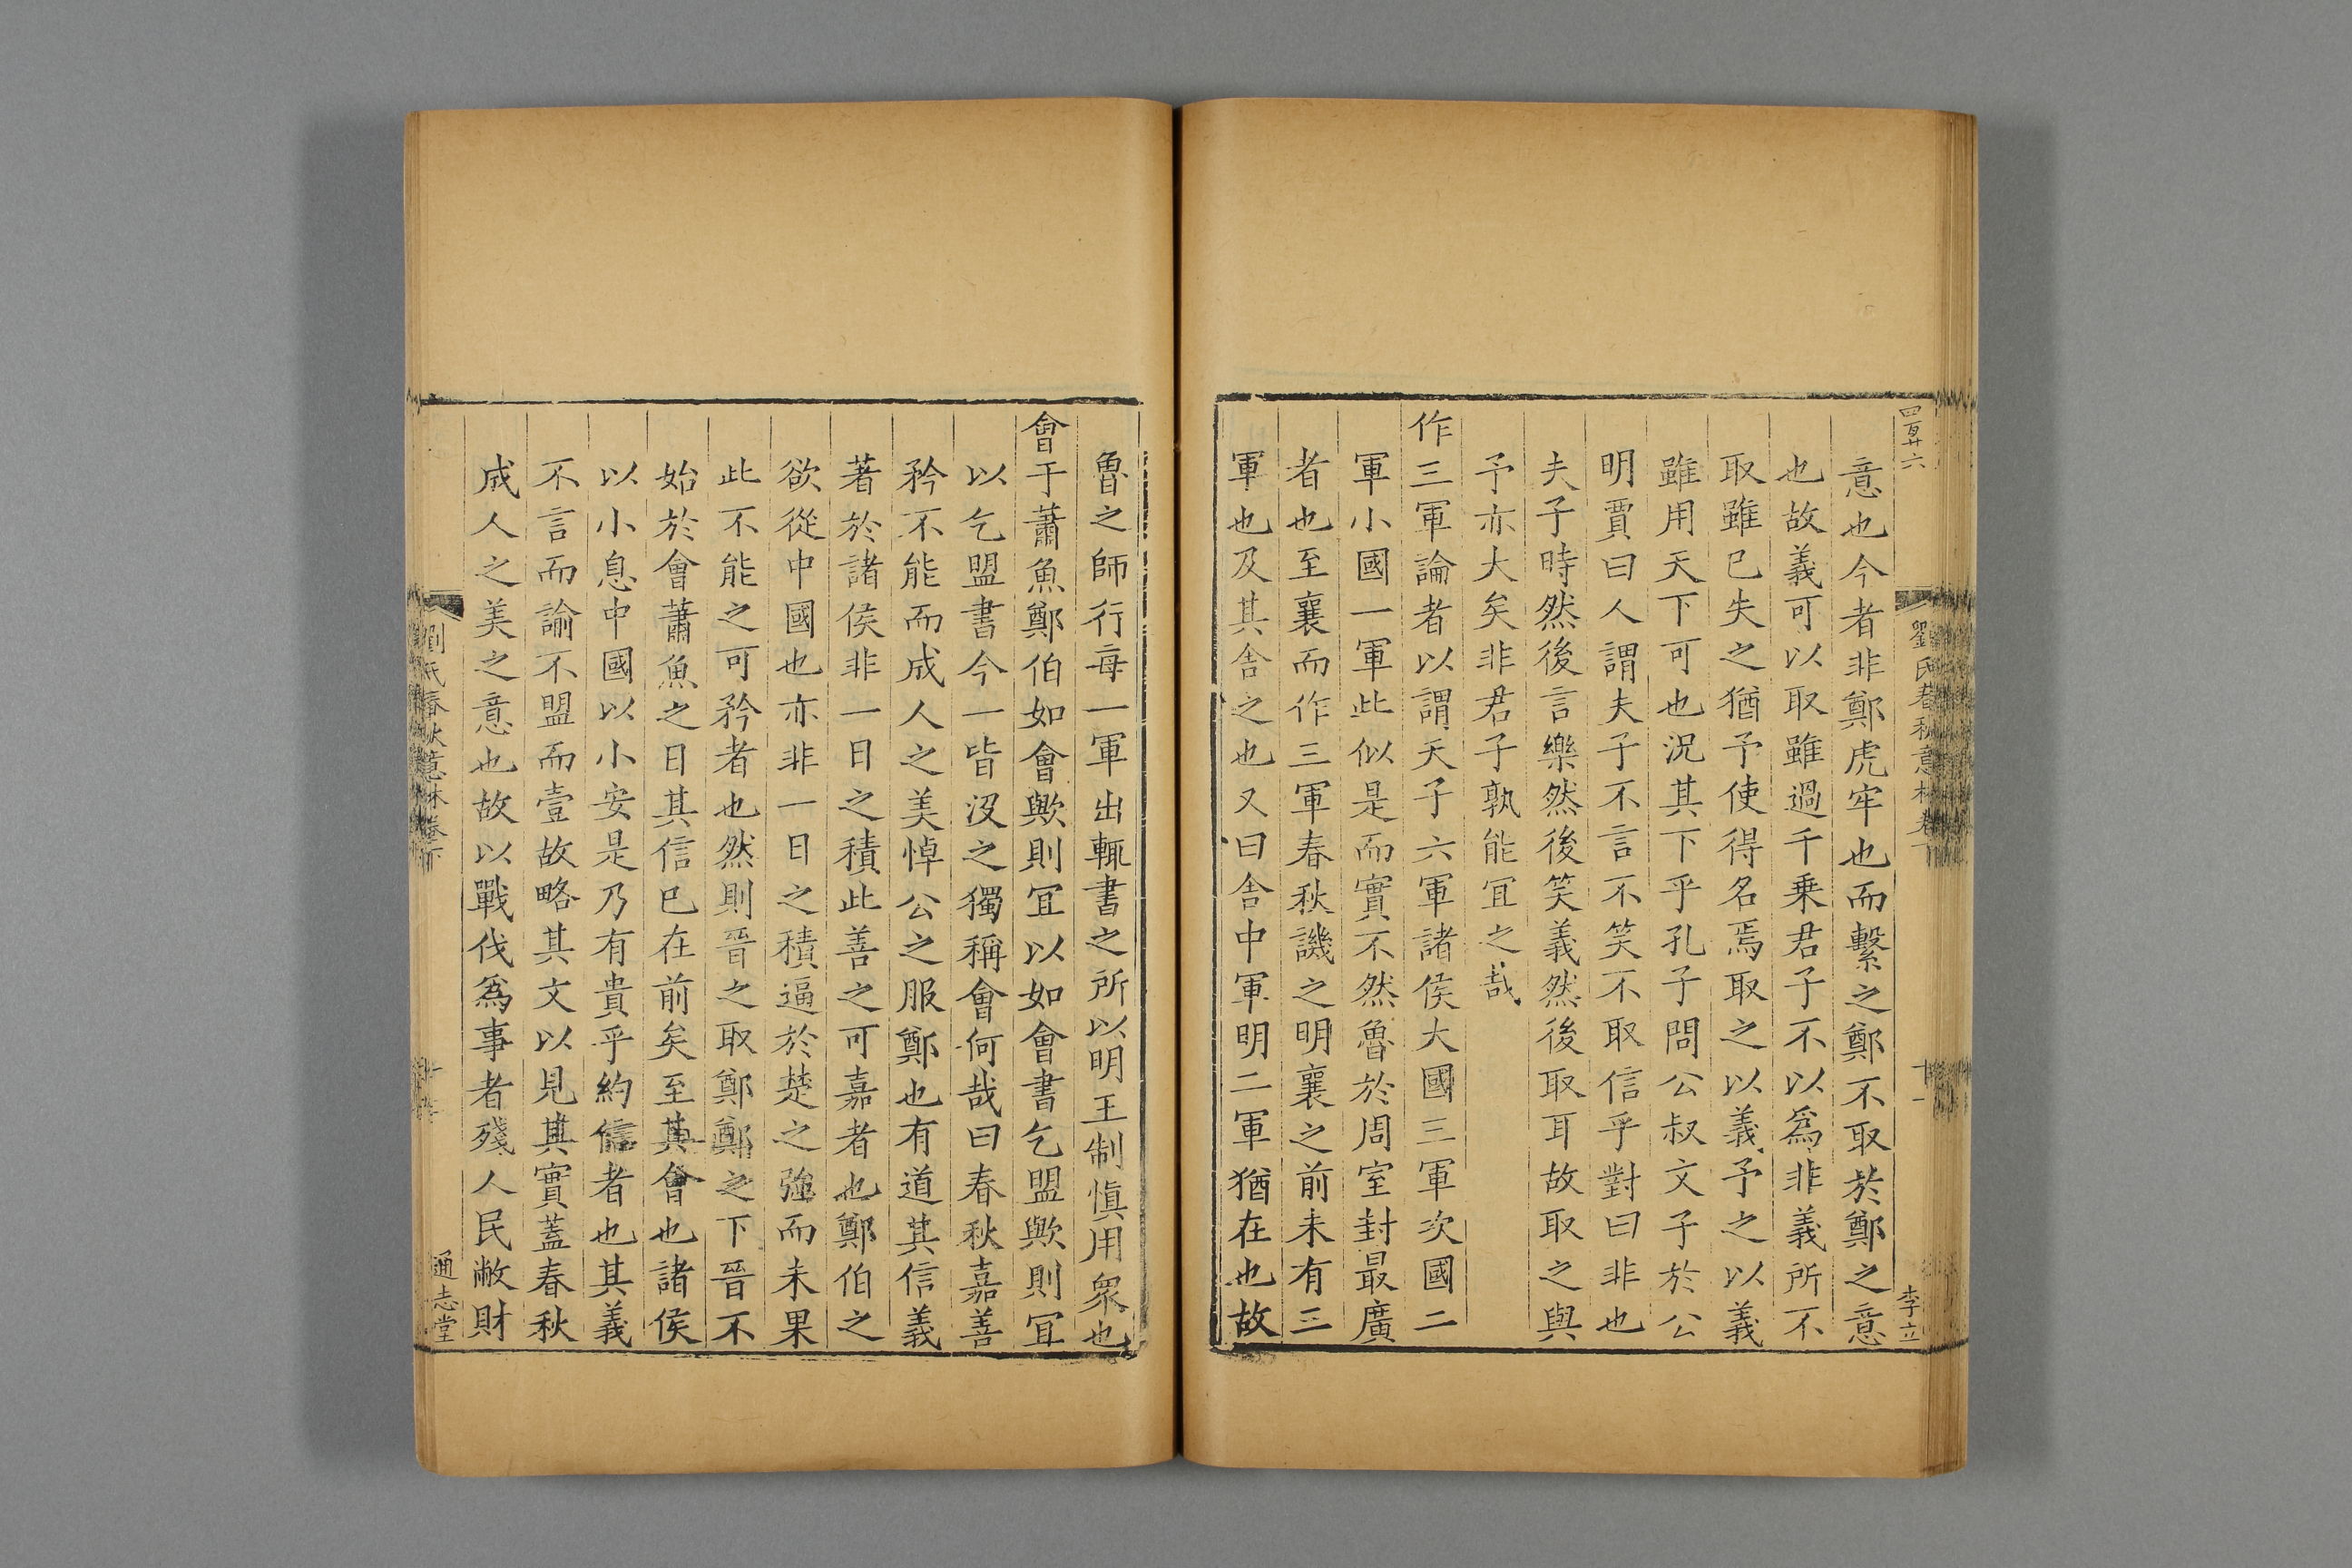 四百廿六
劉氏春秋意林卷下
十一
李立
意也今者非鄭虎牢也而繫之鄭不取於鄭之意
也故義可以取雖過千乗君子不以爲非義所不
取雖已失之猶予使得名焉取之以義予之以義
雖用天下可也況其下乎孔子問公叔文子於公
明賈曰人謂夫子不言不笑不取信乎對曰非也
夫子時然後言樂然後笑義然後取耳故取之與
予亦大矣非君子孰能冝之哉
作三軍論者以謂天子六軍諸侯大國三軍次國二
軍小國一軍此似是而實不然魯於周室封最廣
者也至襄而作三軍春秋譏之明襄之前未有三
軍也及其舍之也又曰舍中軍明二軍猶在也故
魯之師行每一軍出輒書之所以明王制愼用衆也
會于蕭魚鄭伯如會歟則冝以如會書乞盟歟則冝
以乞盟書今一皆沒之獨稱會何哉曰春秋嘉善
矜不能而成人之美悼公之服鄭也有道其信義
著於諸侯非一日之積此善之可嘉者也鄭伯之
欲從中國也亦非一日之積逼於楚之強而未果
此不能之可矜者也然則晉之取鄭鄭之下晉不
始於會蕭魚之日其信已在前矣至其會也諸侯
以小息中國以小安是乃有貴乎約信者也其義
不言而諭不盟而壹故略其文以見其實蓋春秋
成人之美之意也故以戰伐爲事者殘人民敝財
劉氏春秋意林卷下
通志堂